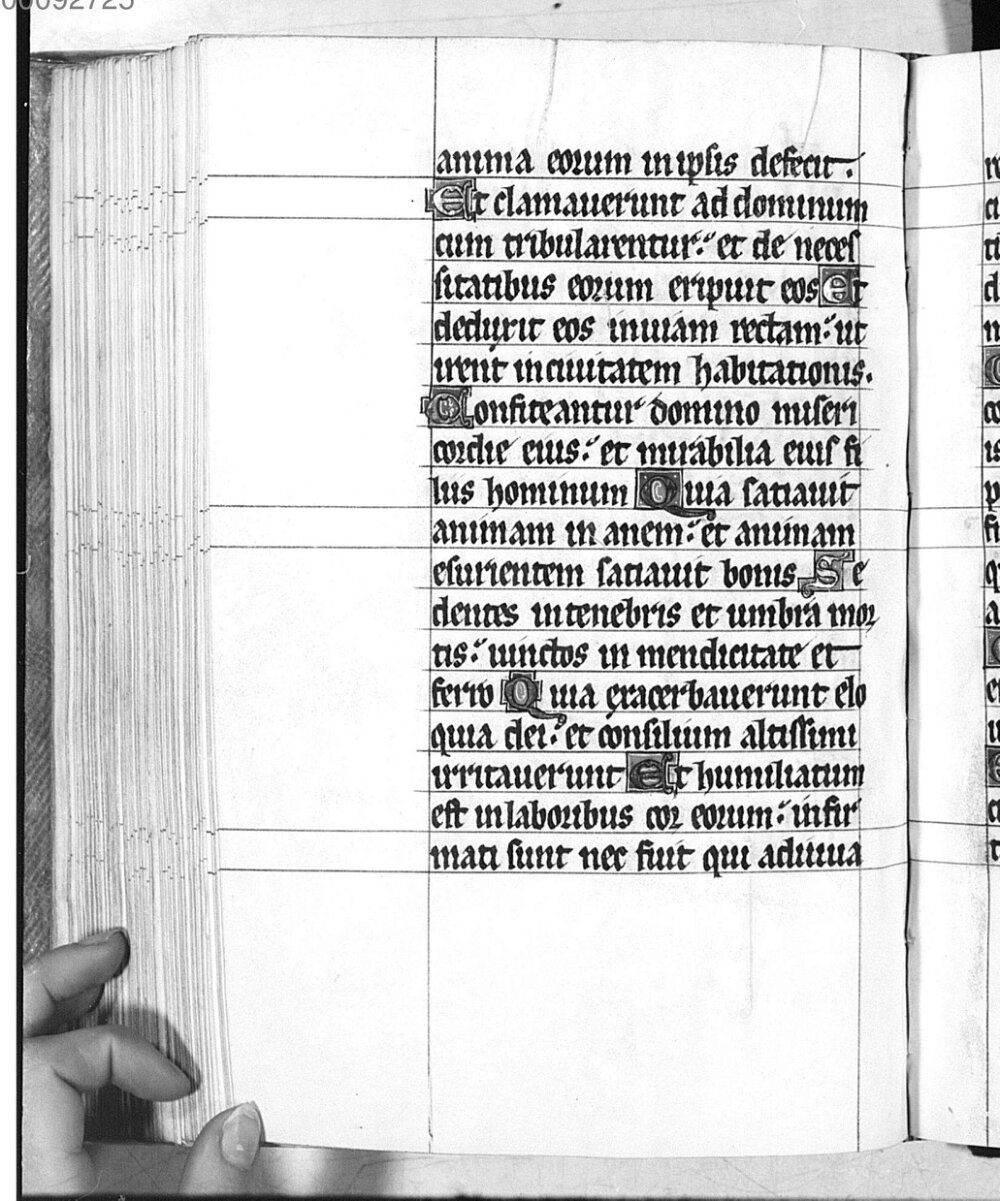 00092725
anima eorum in ipsis defecit.
Et clamauerunt ad dominum
cum tribularentur: et de neces
sitatibus eorum eripuit eos Et
deduxit eos in uiam rectam: ut
irent in ciuitatem habitationis.
Confiteantur domino miseri
cordie eius: et mirabilia eius fi
liis hominum Quia satiauit
animam in anem: et animam
esurientem satiauit bonis Se
dentes in tenebris et umbra mor
tis: uinctos in mendicitate et
ferro Quia exacerbauerunt elo
quia dei: et consilium altissimi
irritauerunt Et humiliatum
est in laboribus cor eorum: infir
mati sunt nec fuit qui adiuua